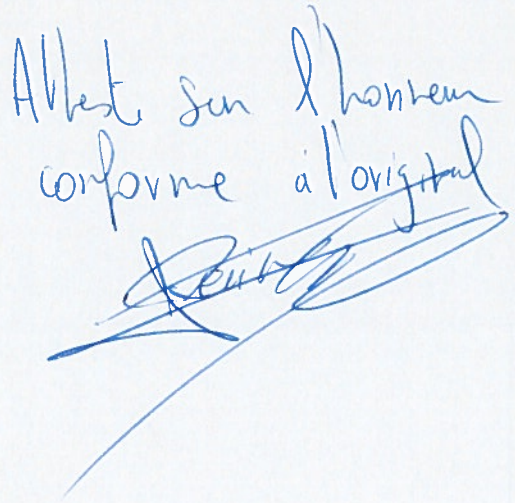 Atteste sur l'honneur
conforme à l'original